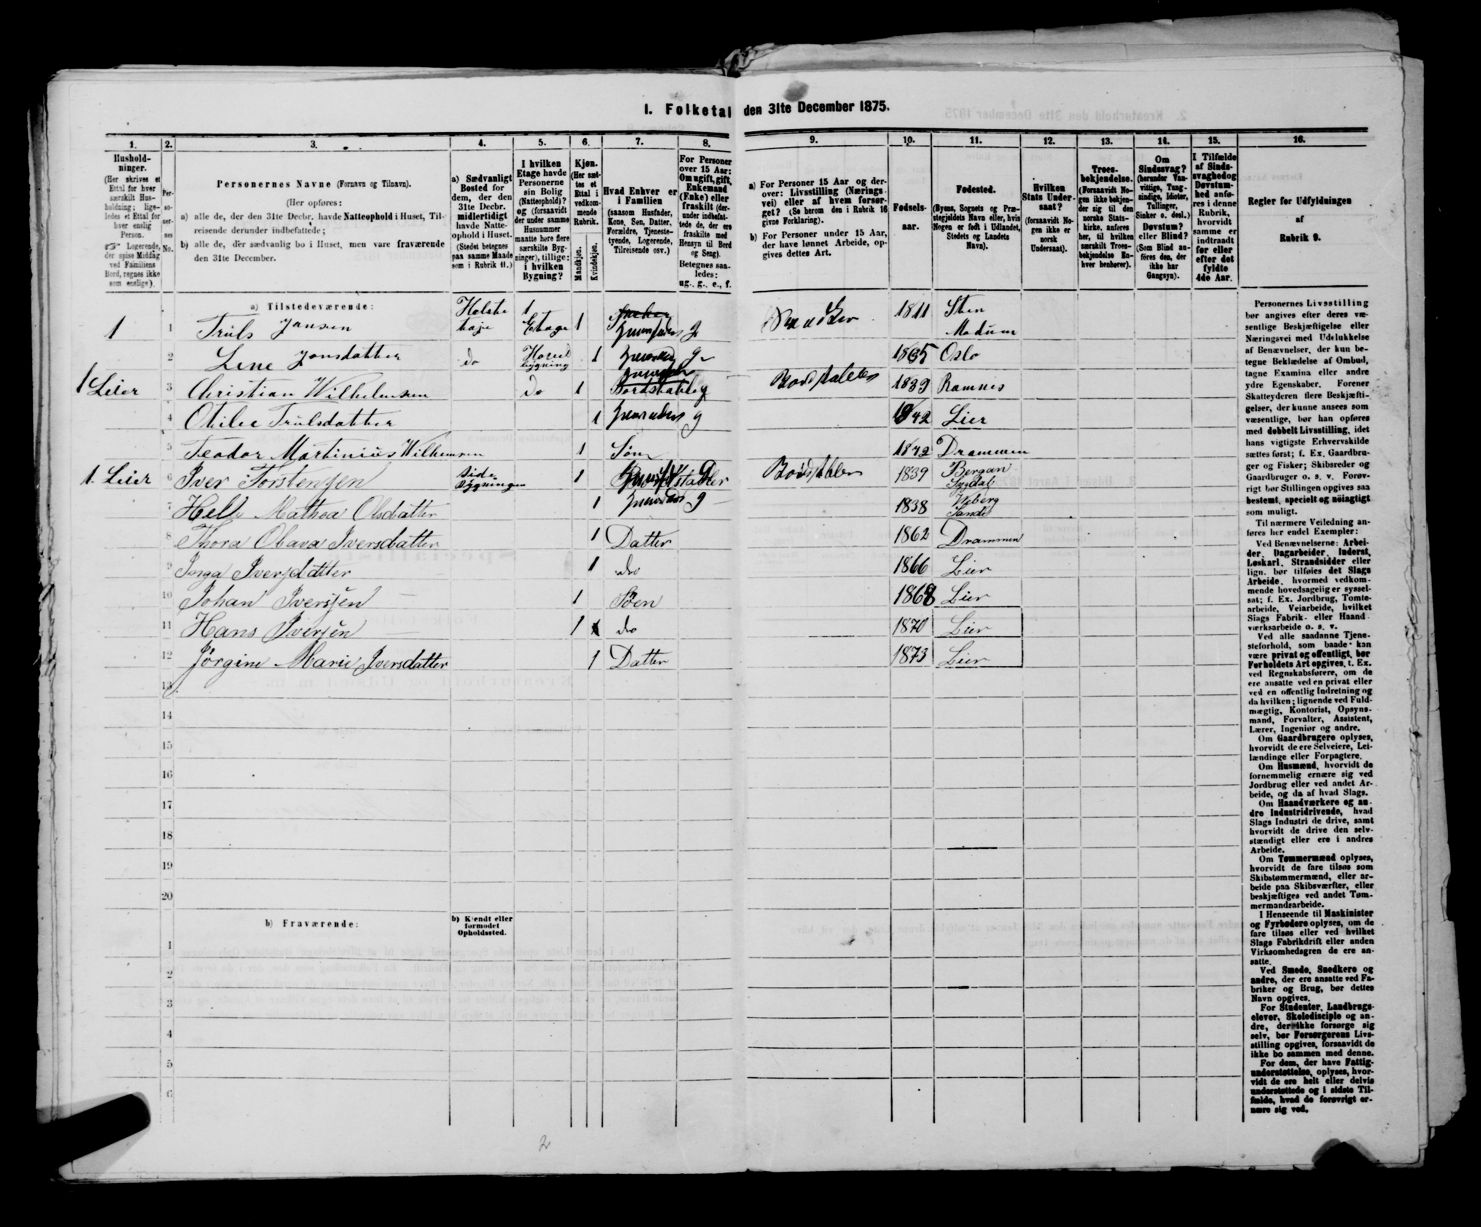 I. Folketal den 31te December 1875.
1. 2. 3. 4. 5. 6. 7. 8. 9. 10. 11. 12. 13. 14. 15. 16.
Hushold-
ninger.
(Her skrives et
Ettal for hver
særskilt Hus-
holdning; lige-
ledes et Ettal for
hver enslig
Person.
☞ Logerende,
der spise Middag
ved Familiens
Bord, regnes ikke
som enslige).
Per-
so-
ner-
nes
No.
Personernes Navne (Fornavn og Tilnavn).
(Her opføres:
a) alle de, der den 31te Decbr. havde Natteophold i Huset, Til-
reisende derunder indbefattede;
b) alle de, der sædvanlig bo i Huset, men vare fraværende
den 31te December.
a) Sædvanligt
Bosted for
dem, der den
31te Decbr.
midlertidigt
havde Natte-
ophold i Huset.
(Stedet betegnes
paa samme Maade
som i Rubrik 11.)
I hvilken
Etage havde
Personerne
sin Bolig
(Natteophold)?
og (forsaavidt
der under samme
Husnummer
maatte høre flere
særskilte Byg-
ninger), tillige:
i hvilken
Bygning?
Kjøn.
(Her sæt-
tes et
Ettal i
vedkom-
mende
Rubrik.
Mandkjøn.
Kvindekjøn.
Hvad Enhver er
i Familien
(saasom Husfader,
Kone, Søn, Datter,
Forældre, Tjeneste-
tyende, Logerende,
Tilreisende osv.)
For Personer
over 15 Aar:
Om ugift, gift,
Enkemand
(Enke) eller
fraskilt (der-
under indbefat-
tede de, der ere
fraskilte med
Hensyn til Bord
og Seng).
Betegnes saa-
ledes:
ug., g., e., f.
a) For Personer 15 Aar og der-
over: Livsstilling (Nærings-
vei) eller af hvem forsør-
get? (Se herom den i Rubrik 16
givne Forklaring).
b) For Personer under 15 Aar,
der have lønnet Arbeide, op-
gives dettes Art.
Fødsels-
aar.
Fødested.
(Byens, Sognets og Præ-
stegjeldets Navn eller, hvis
Nogen er født i Udlandet,
Stedets og Landets
Navn).
Hvilken
Stats Under-
saat?
(forsaavidt No-
gen ikke er
norsk
Undersaat).
Troes-
bekjendelse.
(Forsaavidt No-
gen ikke bekjen-
der sig til den
norske Stats-
kirke, anføres
her, til hvilken
særskilt Troes-
bekjendelse En-
hver henhører).
Om
Sindssvag?
(herunder Van-
vittige, Tung-
sindige, Idioter,
Tullinger,
Sinker o. desl.)
Døvstum?
eller Blind?
(Som Blind an-
føres den, der
ikke har
Gangsyn).
I Tilfælde
af Sinds-
svaghed og
Døvstum-
hed anfø-
res i denne
Rubrik,
hvorvidt
samme er
indtraadt
før eller
efter det
fyldte
4de Aar.
Regler for Udfyldningen
af
Rubrik 9.
a) Tilstedeværende:
1 1 Truls Jansen 1 Etage 1 g 1811 Sten Modum
2 Lene Jonsdatter do 1 g 1805 Oslo
1 Leier 3 Christian Wilhelmsen do 1 g 1839 Ramnes
4 Otilie Trulsdatter 1 g 1842 Lier
5 Teodor Martinius Wilhelmsen 1 Søn 1842 Drammen
1 Leier 6 Iver Torstensen Side bygningen 1 1839
7 Helle Mathea Olsdatter 1 g 1838 Sande
8 Thora Olava Iversdatter 1 Datter 1862 Drammen
9 Inga Iversdatter 1 do 1866 Lier
10 Johan Iversen 1 Søn 1868 Lier
11 Hans Iversen 1 do 1870 Lier
12 Jørgine Marie Iversdatter 1 Datter 1873 Lier
13
14
15
16
17
18
19
20
b) Fraværende:
b) Kjendt eller
formodet
Opholdssted.
1
2
3
4
5
6
Personernes Livsstilling
bør angives efter deres væ-
sentlige Beskjæftigelse eller
Næringsvei med Udelukkelse
af Benævnelser, der kun be-
tegne Beklædelse af Ombud,
tagne Examina eller andre
ydre Egenskaber. Forener
Skatteyderen flere Beskjæfti-
gelser, der kunne ansees som
væsentlige, bør han opføres
med dobbelt Livsstilling, idet
hans vigtigste Erhvervskilde
sættes først; f. Ex. Gaardbru-
ger og Fisker; Skibsreder og
Gaardbruger o. s. v. Forøv-
rigt bør Stillingen opgives saa
bestemt, specielt og nøiagtigt
som muligt.
Til nærmere Veiledning an-
føres her endel Exempler:
Ved Benævnelserne: Arbei-
der, Dagarbeider, Inderst,
Løskarl, Strandsidder eller
lign. bør tilføies det Slags
Arbeide, hvormed vedkom-
mende hovedsagelig er syssel-
sat; f. Ex. Jordbrug, Tomte-
arbeide, Veiarbeide, hvilket
Slags Fabrik- eller Haand-
værksarbeide o. s. v.
Ved alle saadanne Tjene-
steforhold, som baade kan
være privat og offentligt, bør
Forholdets Art opgives, t. Ex.
ved Regnskabsførere, om de
ere ansatte ved en privat eller
ved en offentlig Indretning og
da hvilken; lignende ved Fuld-
mægtig, Kontorist, Opsyns-
mand, Forvalter, Assistent,
Lærer, Ingeniør og andre.
Om Gaardbrugere oplyses,
hvorvidt de ere Selveiere, Lei-
lændinge eller Forpagtere.
Om Husmænd, hvorvidt de
fornemmelig ernære sig ved
Jordbrug eller ved andet Ar-
beide, og da af hvad Slags.
Om Haandværkere og an-
dre Industridrivende, hvad
Slags Industri de drive, samt
hvorvidt de drive den selv-
stændigt eller ere i andres
Arbeide.
Om Tømmermænd oplyses,
hvorvidt de fare tilsøs som
Skibstømmermænd, eller ar-
beide paa Skibsværfter, eller
beskjæftiges ved andet Tøm-
mermandsarbeide.
I Henseende til Maskinister
og Fyrbødere oplyses, om de
fare tilsøs eller ved hvilket
Slags Fabrikdrift eller anden
Virksomhedsgren de ere an-
satte.
Ved Smede, Snedkere og
andre, der ere ansatte ved Fa-
briker og Brug, bør dettes
Navn opgives.
For Studenter, Landbrugs-
elever, Skoledisciple og an-
dre, der ikke forsørge sig
selv, bør Forsørgerens Livs-
stilling opgives, forsaavidt de
ikke bo sammen med denne.
For dem, der have Fattig-
understøttelse, oplyses, hvor-
vidt de ere helt eller delvis
understøttede og i sidste Til-
fælde, hvad de forøvrigt er-
nære sig ved.
2